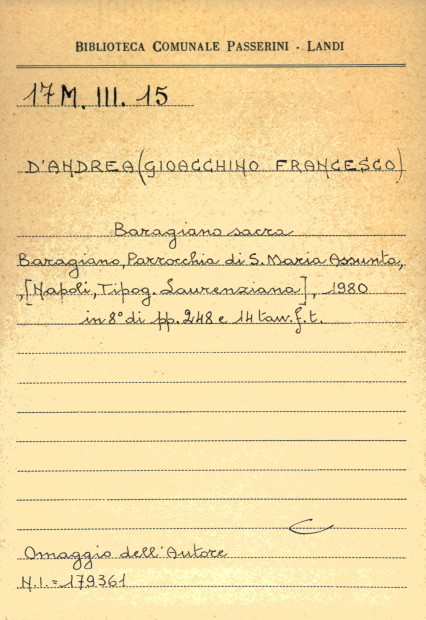 BIBLIOTECA COMUNALE PASSERINI - LANDI
17 M. III. 15
D'ANDREA (GIOACCHINO FRANCESCO)
Baragiano sacra
Baragiano, Parrocchia di S. Maria Assunta,
,[Napoli, Tipog. Laurenziana], 1980
in 8° di pp. 248 e 14 tav. f. t.
Omaggio dell'Autore
N.I. = 179361